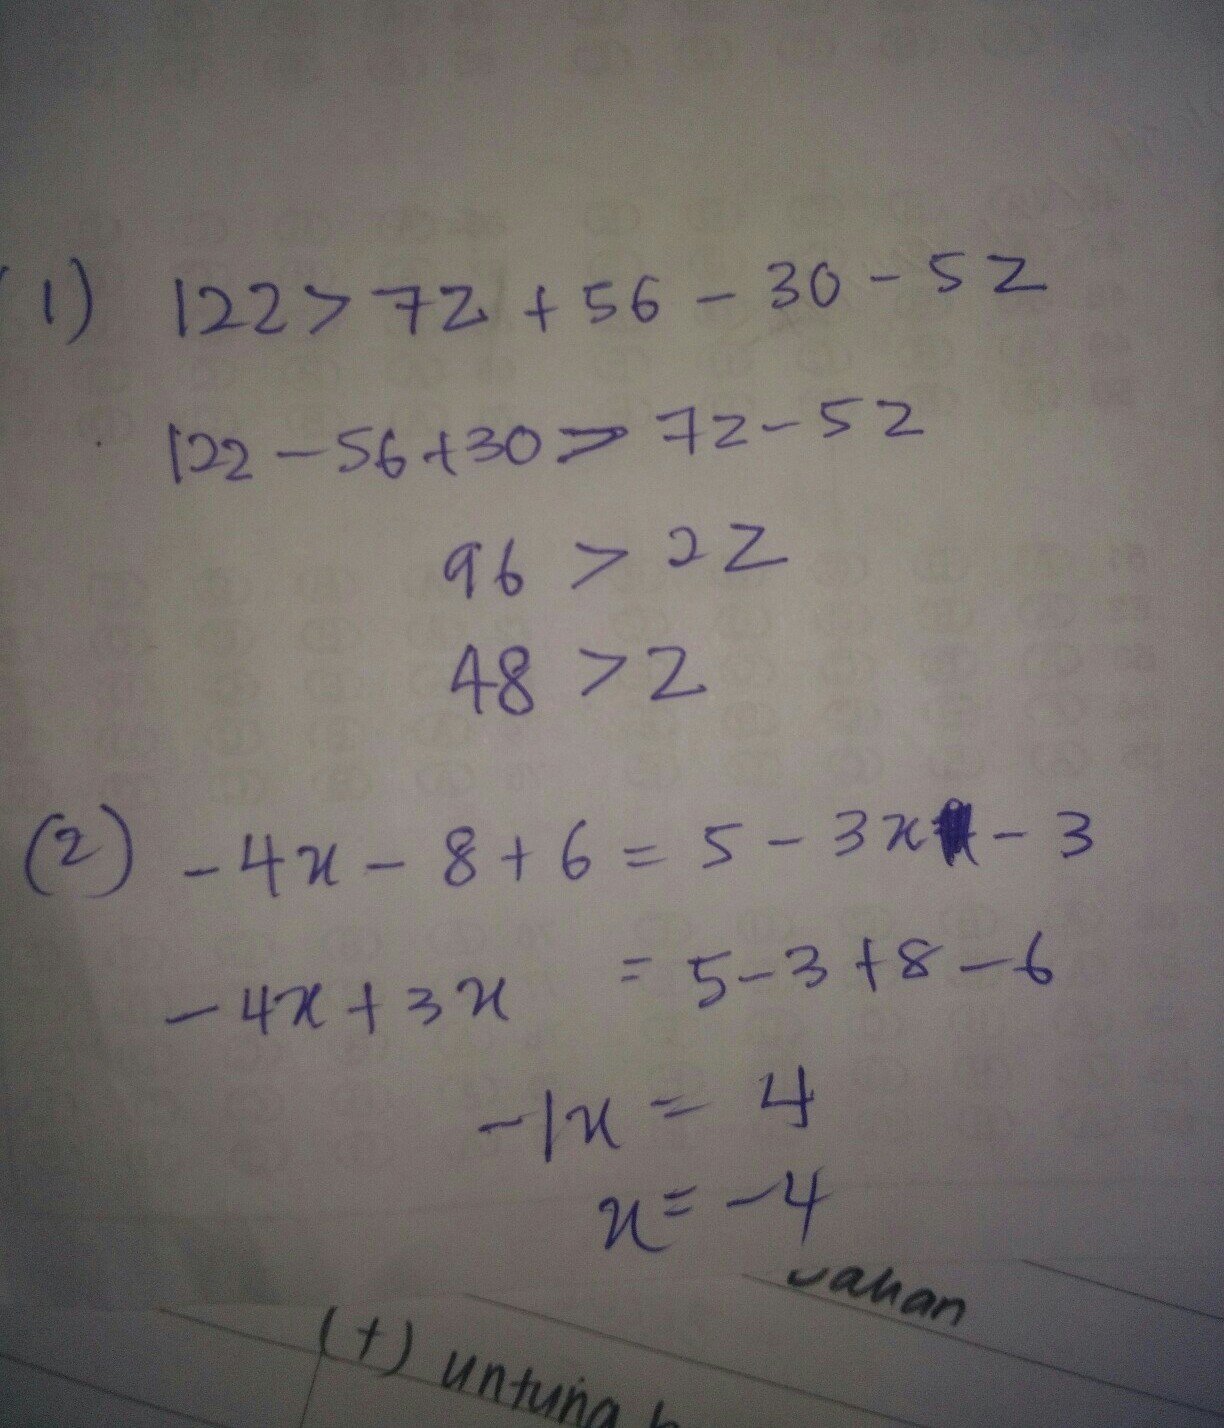 1) 122 > 7z + 56 - 30 - 5z
122 - 56 + 30 > 7z - 5z
96 > 2z
48 > z
(2) -4x - 8 + 6 = 5 - 3x - 3
-4x + 3x = 5 - 3 + 8 - 6
-1x = 4
x = -4
(+) untung